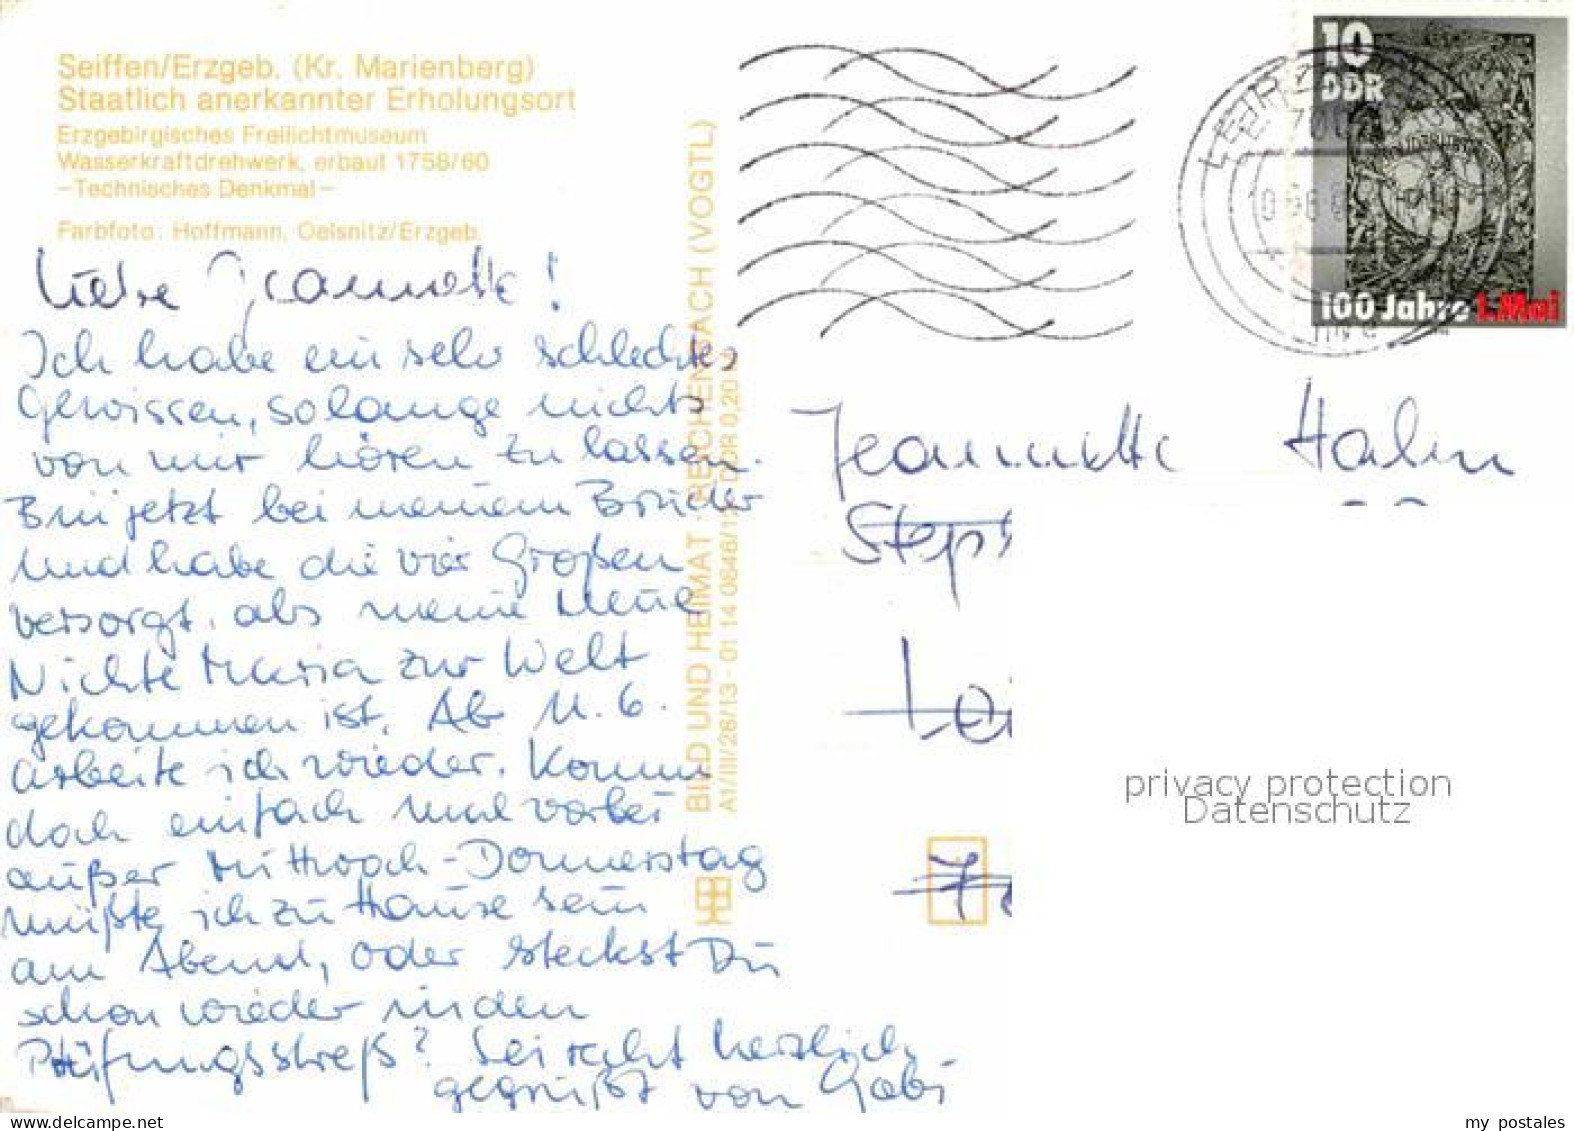 Seiffen/Erzgeb. (Kr. Marienberg)
Staatlich anerkannter Erholungsort
Erzgebirgisches Freilichtmuseum
Wasserkraftdrehwerk, erbaut 1758/60
-Technisches Denkmal-
Farbfoto: Hoffmann, Oelsnitz/Erzgeb.
Liebe Jeannette!
Ich habe ein sehr schlechtes
Gewissen, solange nichts
von mir hören zu lassen.
Bin jetzt bei meinem Bruder
und habe die vier Großen
versorgt, als meine neue
Nichte Maria zur Welt
gekommen ist. Ab 11.6.
arbeite ich wieder. Komm
doch einfach mal vorbei
außer Mittwoch-Donnerstag
müßte ich zu Hause sein
am Abend, oder steckst Du
schon wieder in den
Prüfungsstreß? Sei recht herzlich
gegrüßt von Gabi
BILD UND HEIMAT REICHENBACH (VOGTL)
A1/III/26/13 - 01 14 0846/12 DDR 0,20
10
DDR
100 Jahre 1. Mai
Jeannette Hahn
Step
Lei
privacy protection
Datenschutz
my postales